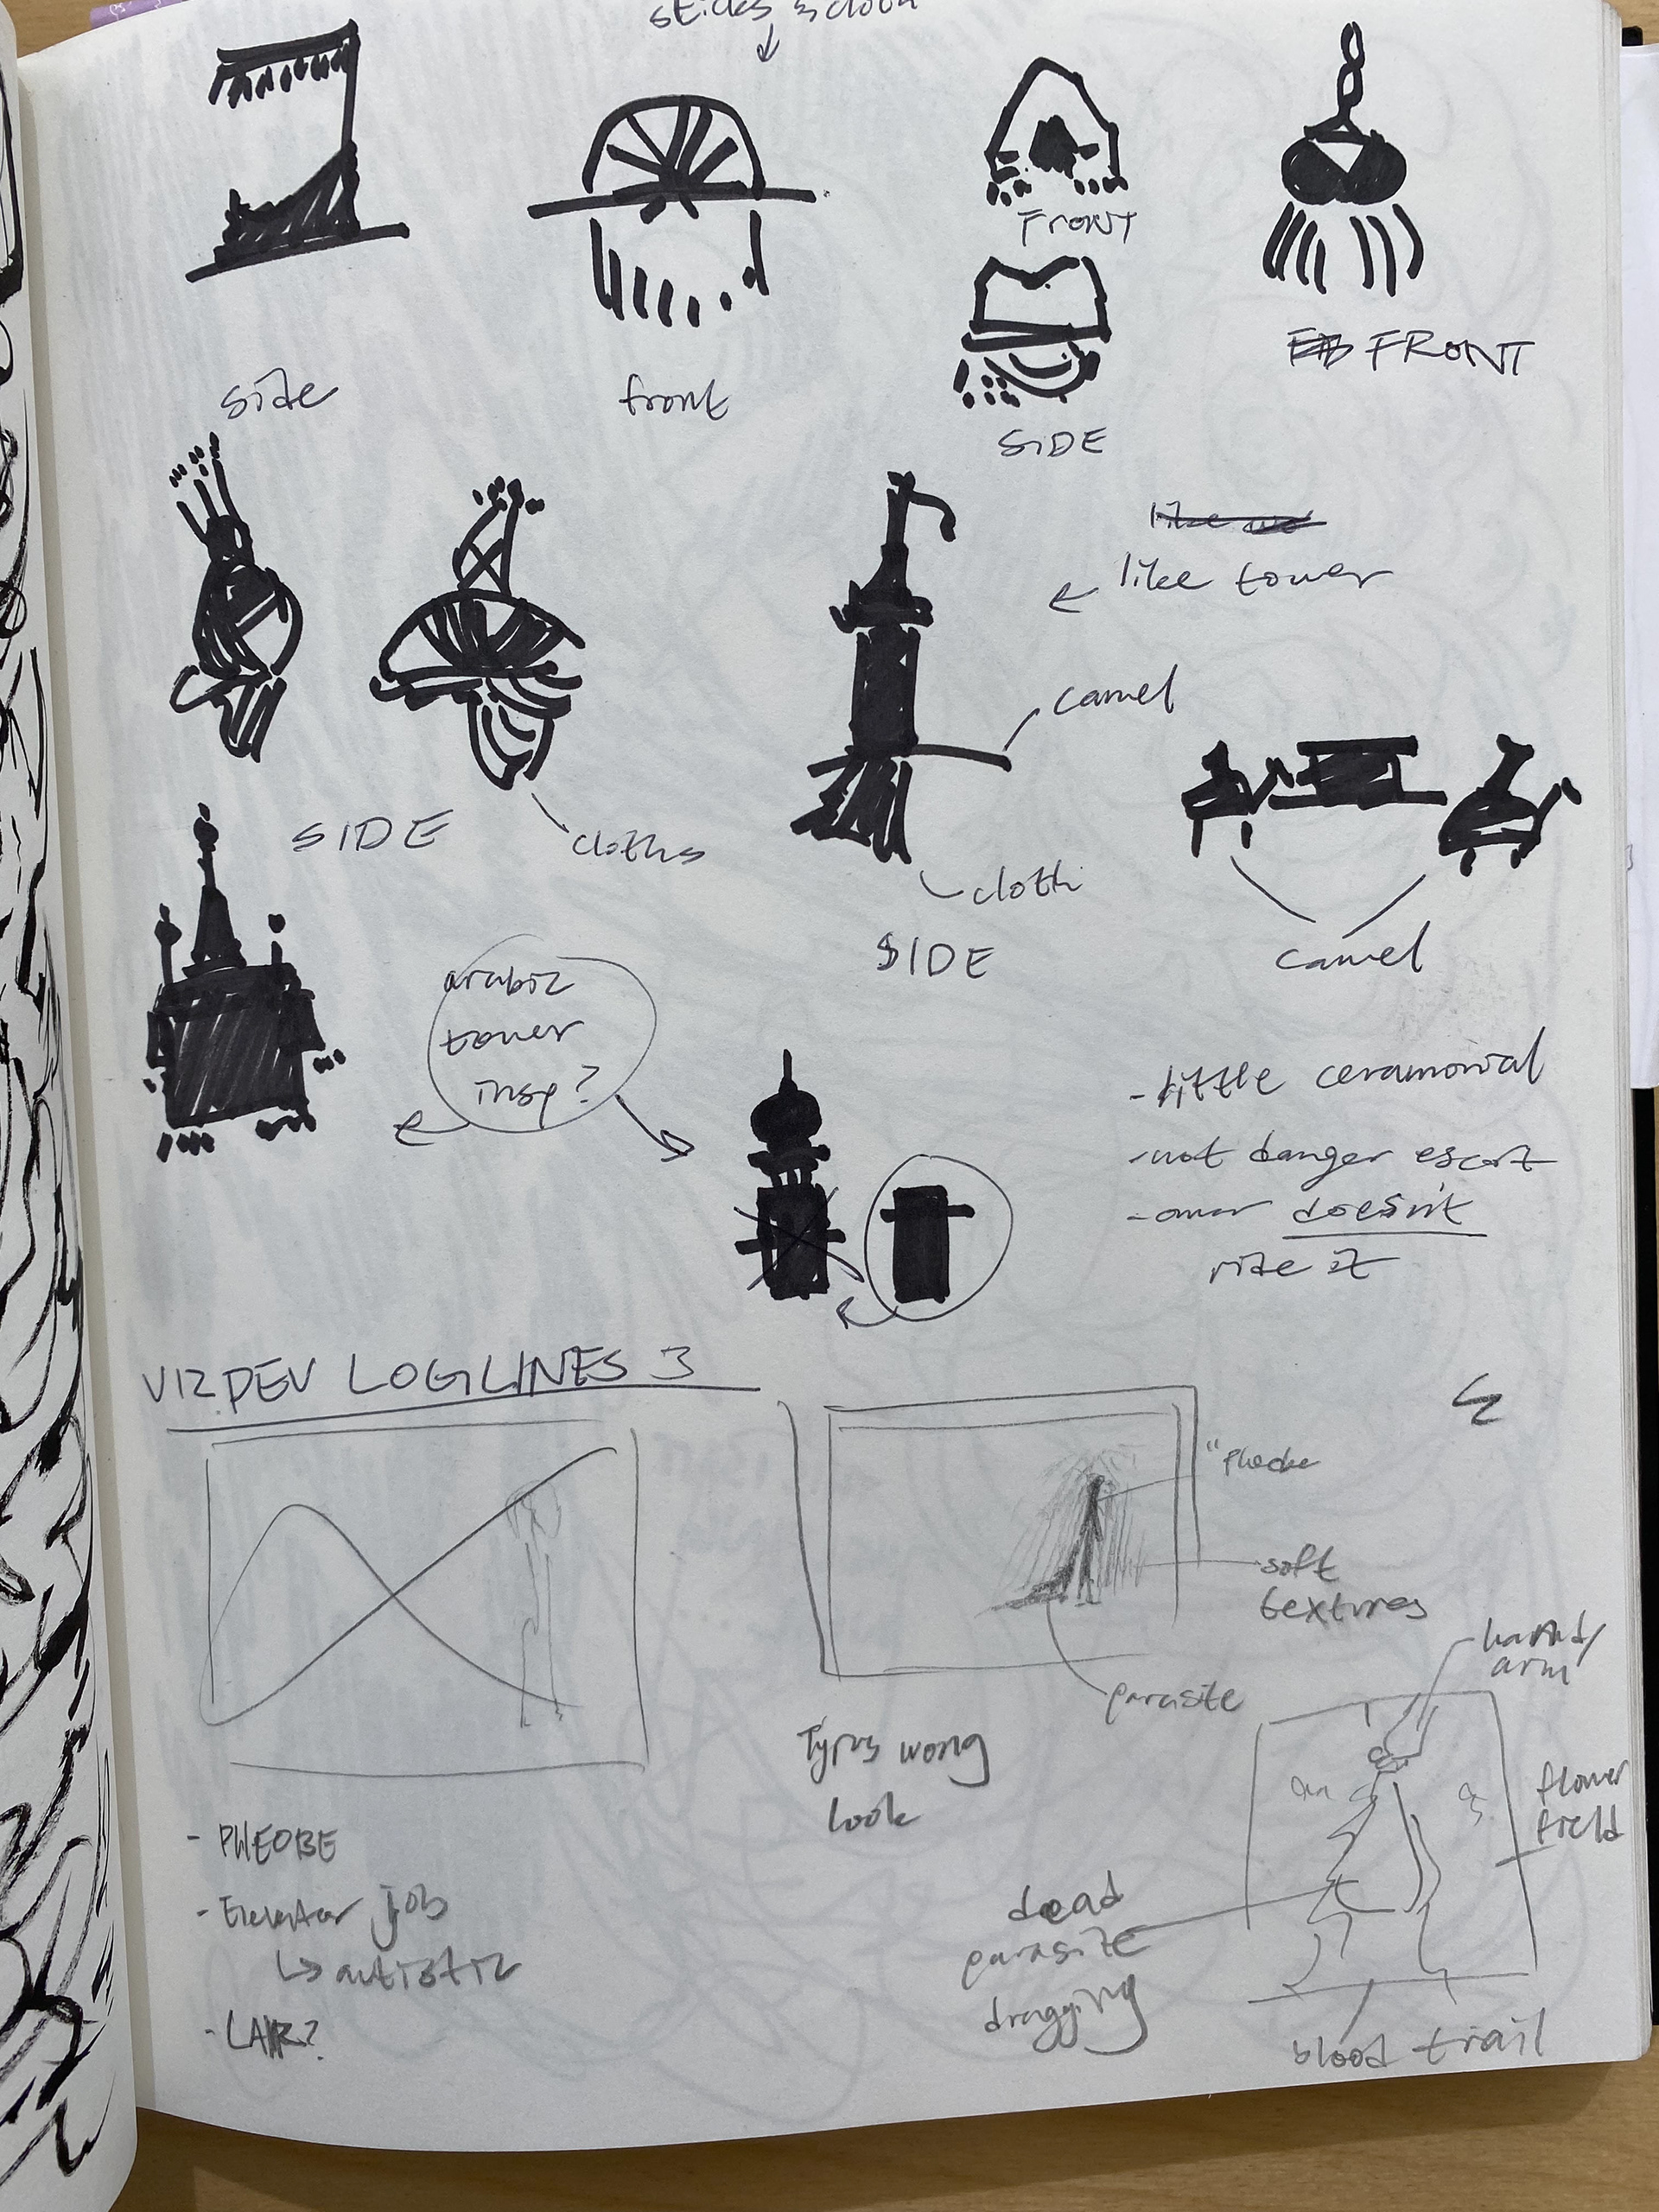 sticks & cloth
side
front
FRONT
SIDE
FRONT
SIDE
cloths
like
like tower
camel
cloth
SIDE
camel
arabic
tower
insp?
- little ceramonial
- not danger escort
- omar doesn't
ride it
VIZDEV LOGLINES 3
"Pheobe
soft
textures
parasite
Tyrus wong
look
hand/
arm
flower
field
dead
parasite
dragging
blood trail
- PHEOBE
- Elevator job
↳ autistic
- LAIR?